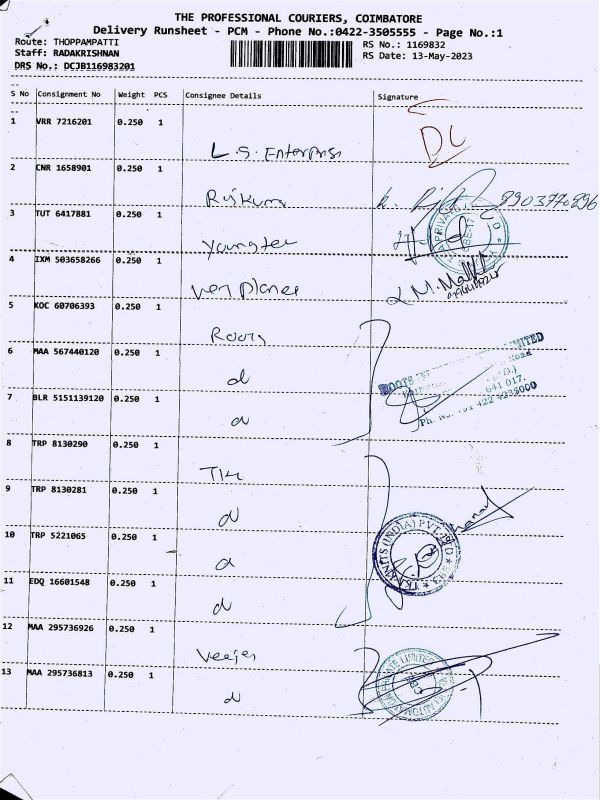 THE PROFESSIONAL COURIERS, COIMBATORE
Delivery Runsheet - PCM - Phone No.:0422-3505555 - Page No.:1
Route: THOPPAMPATTI
RS No.: 1169832
Staff: RADAKRISHNAN
RS Date: 13-May-2023
DRS No.: DCJB116983201
S No Consignment No Weight PCS Consignee Details Signature
1 VRR 7216201 0.250 1 L.S. Enterprises DC
2 CNR 1658901 0.250 1 Rajkumar 8903770896
3 TUT 6417881 0.250 1 Youngtex
4 IXM 503658266 0.250 1
5 KOC 60706393 0.250 1 Roots
6 MAA 567440120 0.250 1 d
7 BLR 5151139120 0.250 1 d
641 017.
8 TRP 8130290 0.250 1
9 TRP 8130281 0.250 1 d
10 TRP 5221065 0.250 1 d
KNITS (INDIA) PVT. LTD
11 EDQ 16601548 0.250 1 d
12 MAA 295736926 0.250 1 Veejay
13 MAA 295736813 0.250 1 d